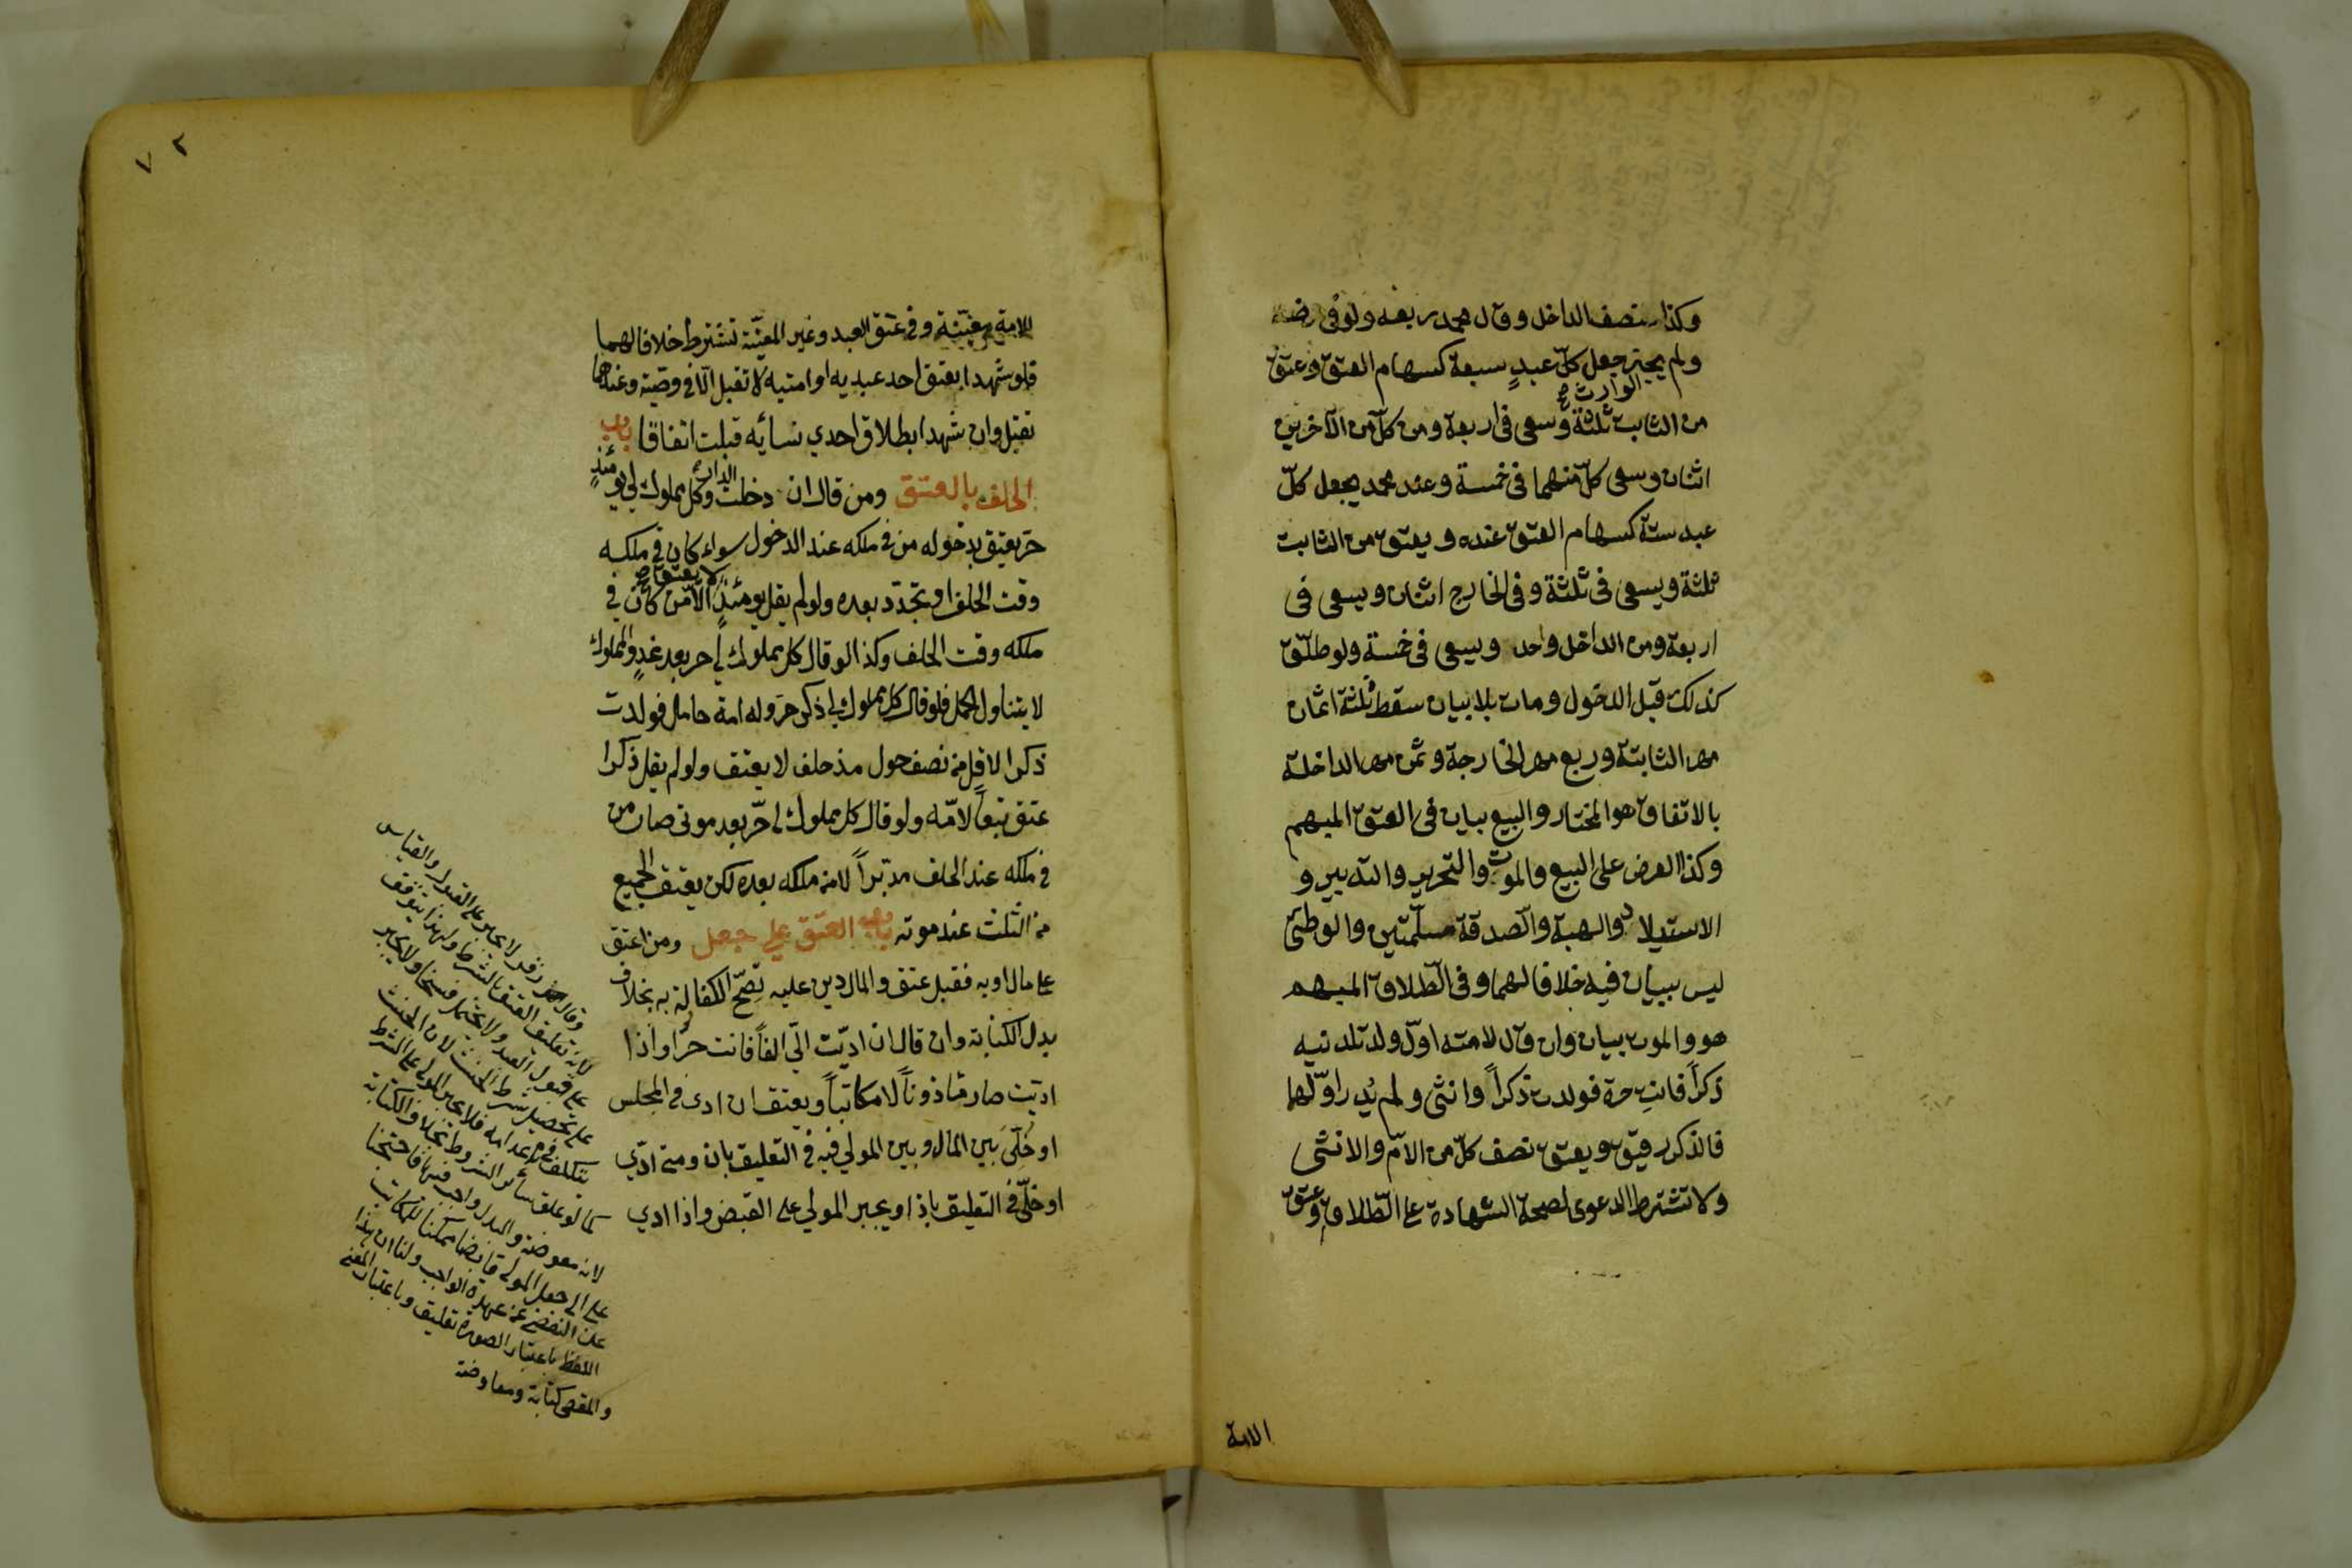 وكذا نصف الداخل وقال محمد ربعه ولو في مرضه
ولم يجز جعل كل عبدٍ سبعة كسهام العتق وعتق
الوارث صح
من الثابت ثلثة وسعى في اربعة ومن كلّ من الآخرين
اثنان وسعى كلّ منهما في خمسة وعند محمد يجعل كلّ
عبد ستة كسهام العتق عنده ويعتق من الثابت
ثلثة ويسعى في ثلثة وفي الخارج اثنان ويسعى في
اربعة ومن الداخل واحد ويسعى في خمسة ولو طلّق
كذلك قبل الدخول ومات بلا بيان سقط ثلثة اثمان
مهر الثابتة وربع مهر الخارجة وثمن مهر الداخلة
بالاتفاق هو المختار والبيع بيان في العتق المبهم
وكذا العرض على البيع والموت والتحرير والتدبير و
الاستيلاد والهبة والصّدقة مسلّمتين والوطئ
ليس ببيان فيه خلافا لهما وفي الطّلاق المبهم
هو والموت بيان وان قال لامته اوّل ولد تلدينيه
ذكراً فانتِ حرة فولدت ذكراً وانثى ولم يُدر اوّلها
فالذكر رقيق ويعتق نصف كلّ من الامّ والانثى
ولا تشترط الدعوى لصحة الشهادة على الطّلاق وعتق
الامة
٧٢
الامة معيّنة وفي عتق العبد وغير المعيّنة تشترط خلافا لهما
فلو شهدا بعتق احد عبديه او امتيه لا تقبل الّا في وصيّة وعندهما
تقبل وان شهدا بطلاق احدي نسائه قبلت اتفاقا باب
الحلف بالعتق ومن قال ان دخلت الدار فكل مملوك لي يومئذٍ
حرّ يعتق بدخوله من في ملكه عند الدخول سواء كان في ملكه
وقت الحلف او تجدّد بعده ولو لم يقل يومئذٍ لا يعتق صح الّا من كان في
ملكه وقت الحلف وكذا لو قال كل مملوك لي حر بعد غدٍ والمملوك
لا يتناول الحمل فلو قال كل مملوك لي ذكر حرّ وله امة حامل فولدت
ذكرا لاقلّ من نصف حول مذ حلف لا يعتق ولو لم يقل ذكرا
عتق تبعاً لامّه ولو قال كل مملوك لي حرّ بعد موتى صار من
في ملكه عند الحلف مدبّراً لا من ملكه بعده لكن يعتق الجميع
من الثلث عند موته باب العتق على جعل ومن اعتق
على مال او به فقبل عتق والمال دين عليه تصحّ الكفالة به بخلاف
بدل الكتابة وان قال ان ادّيت الّي الفاً فانت حرّ او اذا
ادّيت صار مأذوناً لا مكاتباً ويعتق ان ادى في المجلس
او خُلّي بين المال وبين المولي فيه في التعليق بان ومتى ادّي
او خلّي في التعليق باذا ويجبر المولي على القبض واذا ادي
وقال زفر لا يجبر على القبول والقياس
لانه تعليق العتق بالشرط ولهذا يتوقف
على قبول العبد ولا يحتمل فسخا ولا يجبر
على تحصيل شرط الحنث لان الحنث
كما لو علق بسائر الشروط بخلاف الكتابة
لانه معوضة والبدل واجب فيها
عن عهدة الواجب ولنا ان هذا
اللفظ باعتبار الصورة تعليق وباعتبار المعنى
والمقصد كتابة ومعاوضة